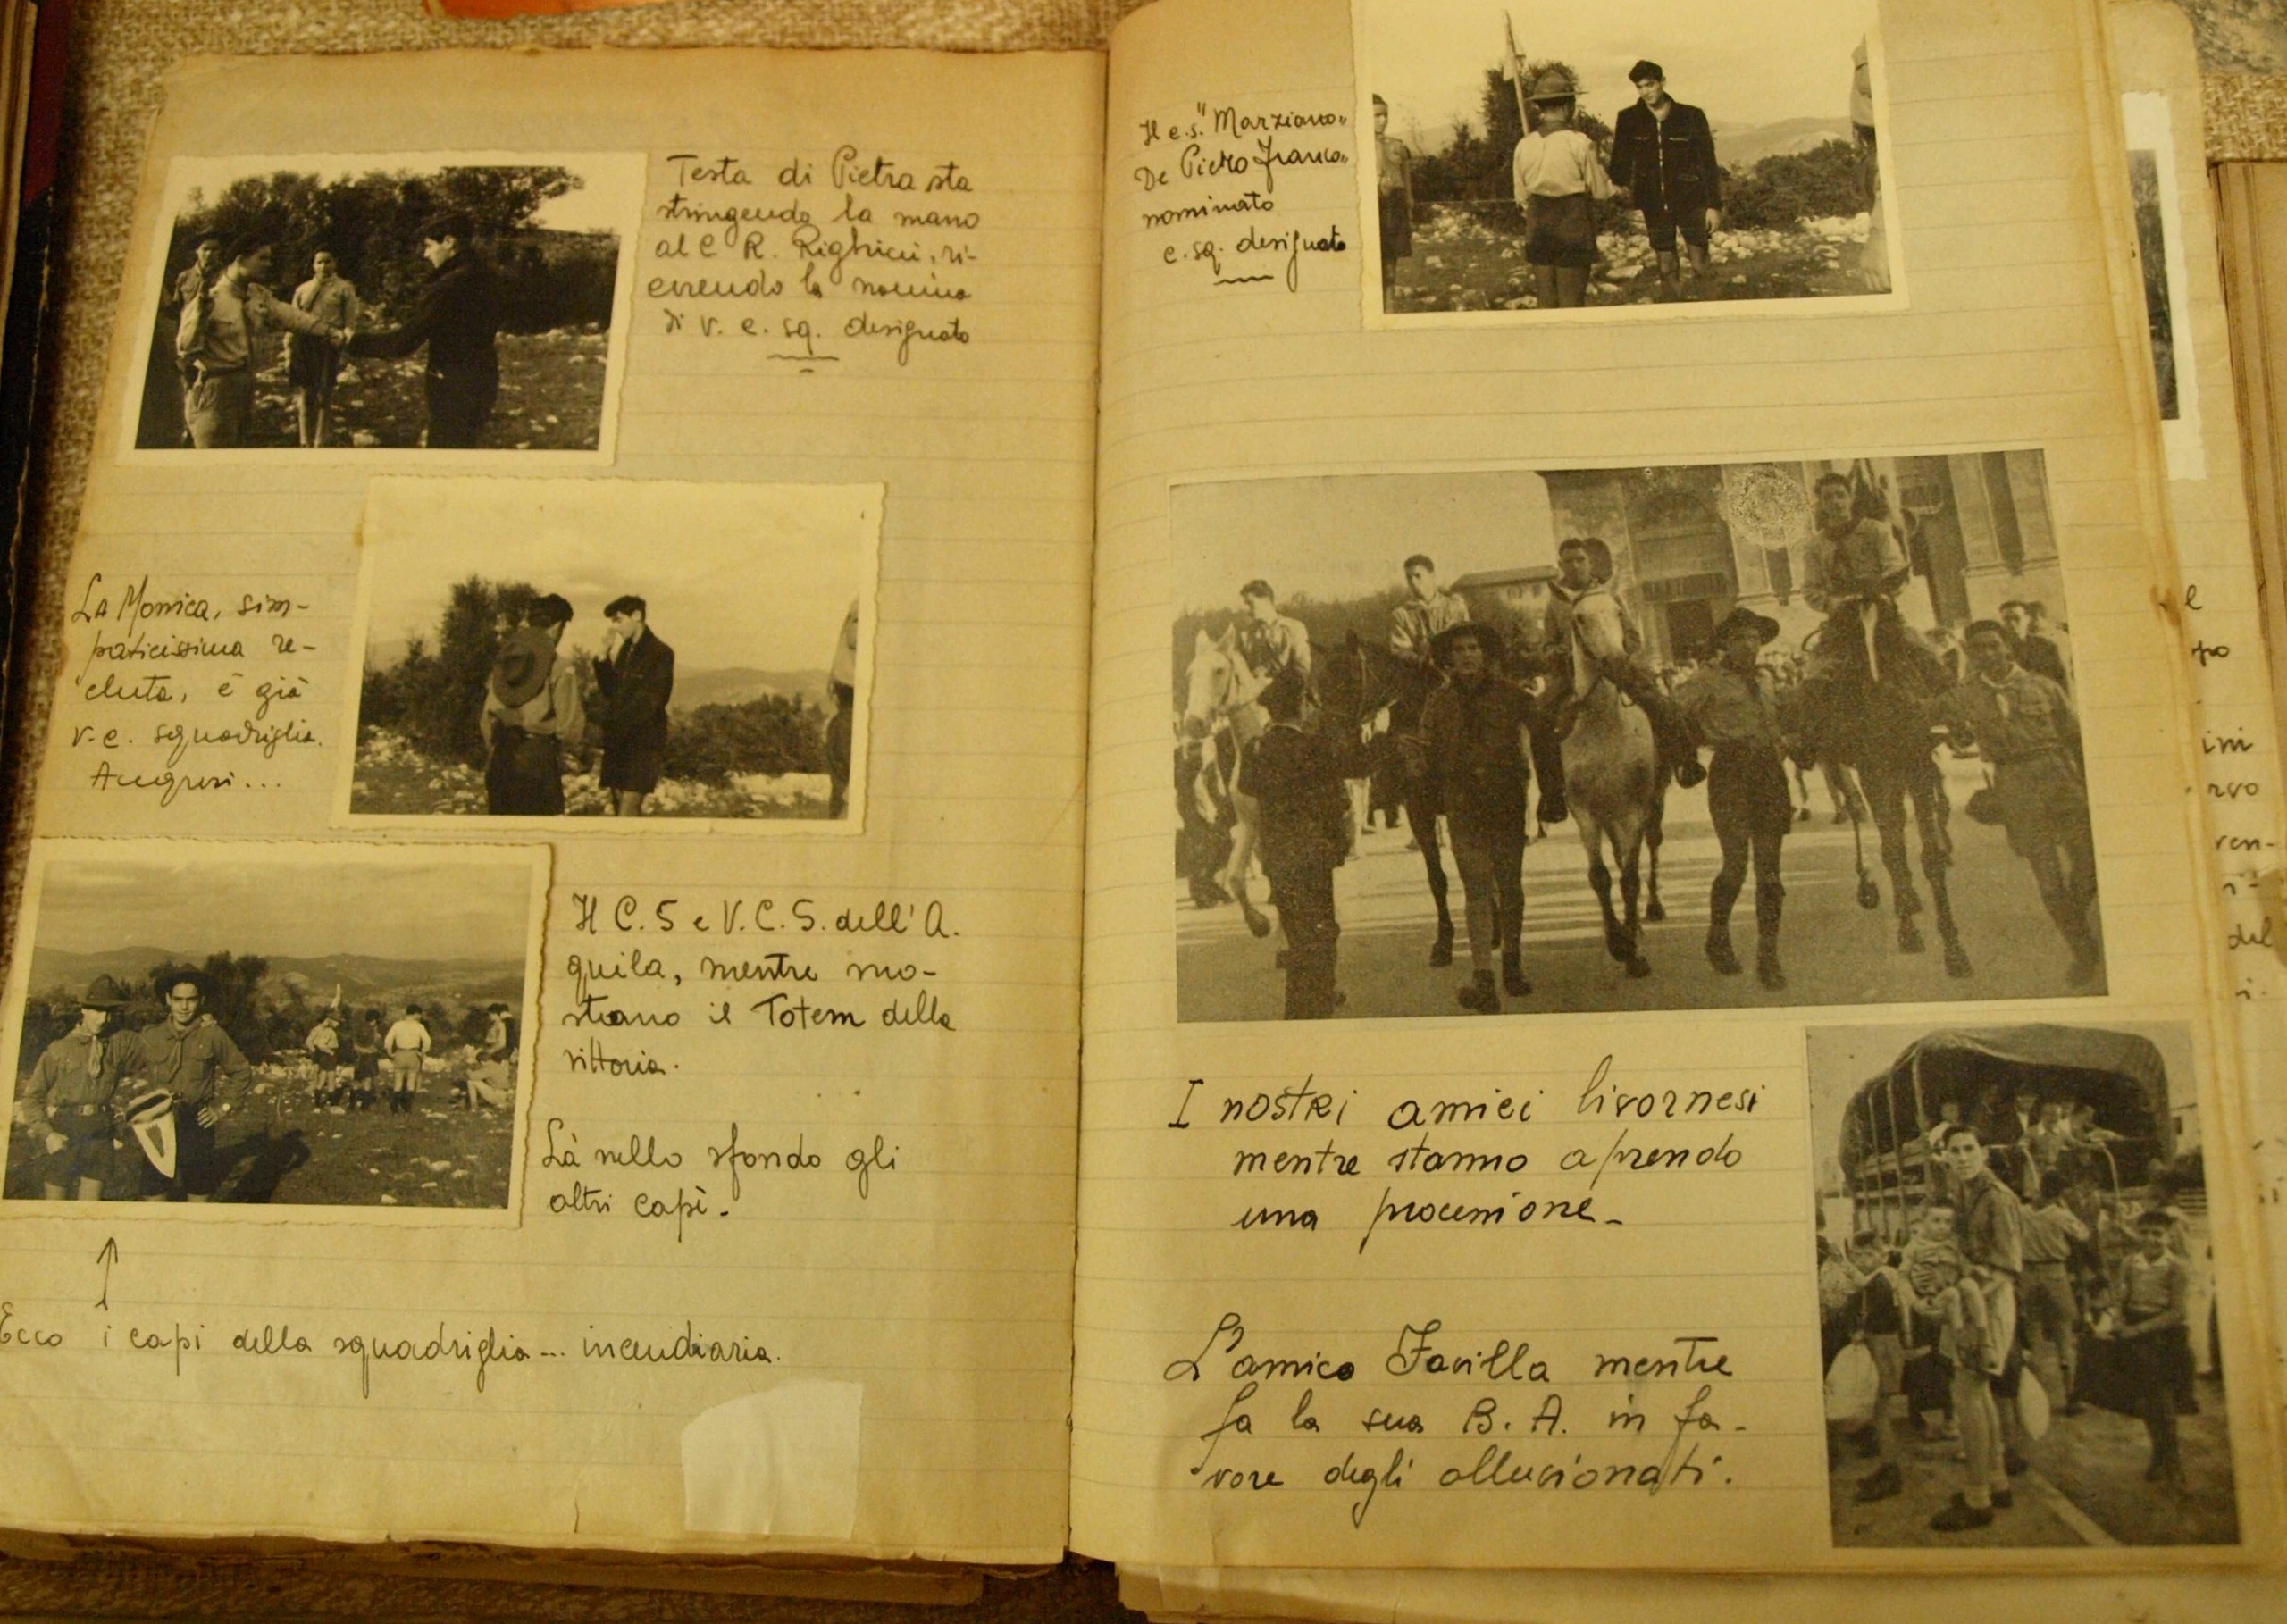 Testa di Pietra sta
stringendo la mano
al C R. Righini, ri-
cevendo la nomina
di v. c. sq. designato
La Monica, sim-
paticissima re-
cluta, è già
v. c. squadriglia.
Auguri...
Il C. S e V. C. S. dell'A.
quila, mentre mo-
strano il Totem della
vittoria.
Là nello sfondo gli
altri capi.
Ecco i capi della squadriglia... incendiaria.
Il c. s. "Marziano"
De Piero Franco
nominato
c. sq. designato
I nostri amici livornesi
mentre stanno aprendo
una processione.
L'amico Favilla mentre
fa la sua B. A. in fa-
vore degli alluvionati.
ini
rvo
ven-
del